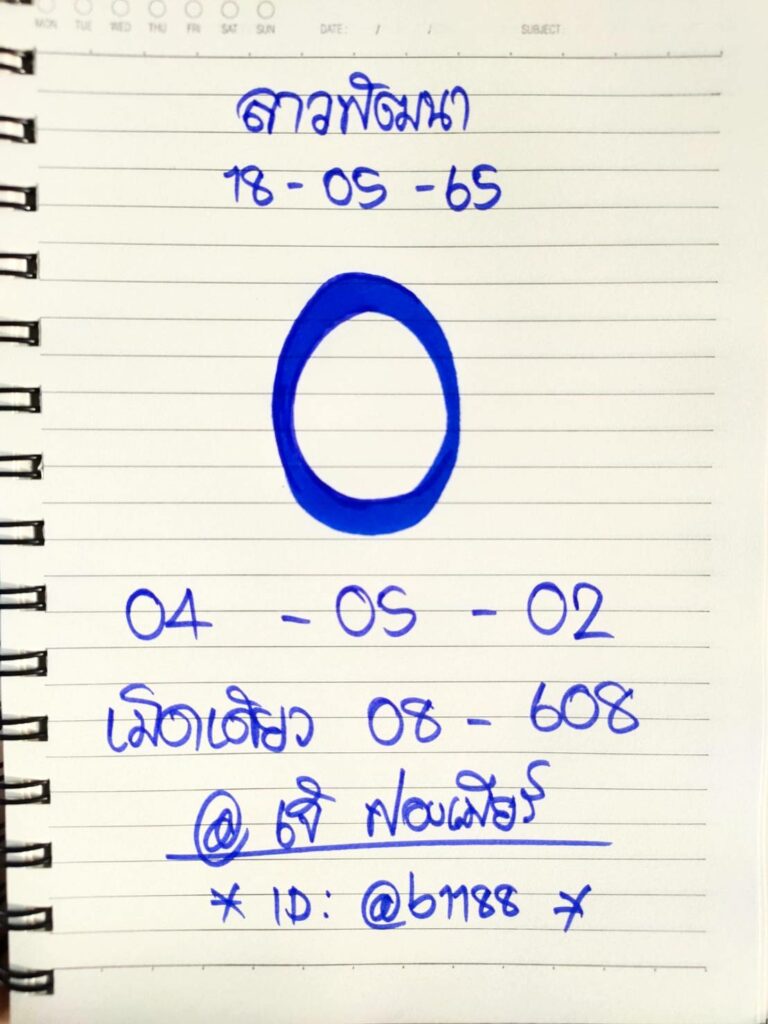 MON TUE WED THU FRI SAT SUN DATE: / / SUBJECT:
ลาวพัฒนา
18 - 05 - 65
0
04 - 05 - 02
เม็ดเดียว 08 - 608
@ เจ๊ ฟองเบียร์
* ID: @b1188 *